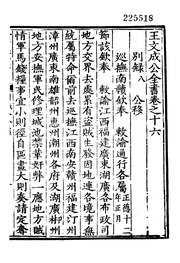 225518
王文成公全書卷之十六
別錄八　公移
巡撫南贛欽奉　敕諭通行各屬　正德十二年正月
節該欽奉　敕諭江西福建廣東湖廣各布政司
地方交界去處累有盜賊生發因地連各境事無
統屬特命爾前去巡撫江西南安贛州福建汀州
漳州廣東南雄韶州惠州潮州各府及湖廣郴州
地方安撫軍民修理城池禁革奸弊一應地方賊
情軍馬錢糧事宜小則徑自區畫大則奏請定奪